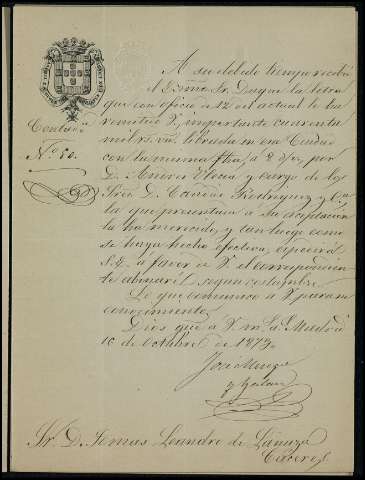 A su debido tiempo recibió
el Excmo. Sr. Duque la letra
que con oficio de 12 del actual le ha
remitido V., importante cuarenta
mil rs. vn. librada en esa Ciudad
con la misma fha, á 8 d/v, por
D. y cargo de los
Sres. D. Rodriguez y Ca
la que presentada á su aceptación
la ha merecido, y tan luego como
se haya hecho efectiva, expedirá
S.E. á favor de V. el correspondien
te abonaré segun costumbre.
Lo que comunico á V. para su
conocimiento.
Dios gue. á V. m. a. Madrid
16 de Octubre de 1879.
José
y Galan
Contadª
Nº 50.
Sr. D. Tomas Leandro de Lanuza
Caceres